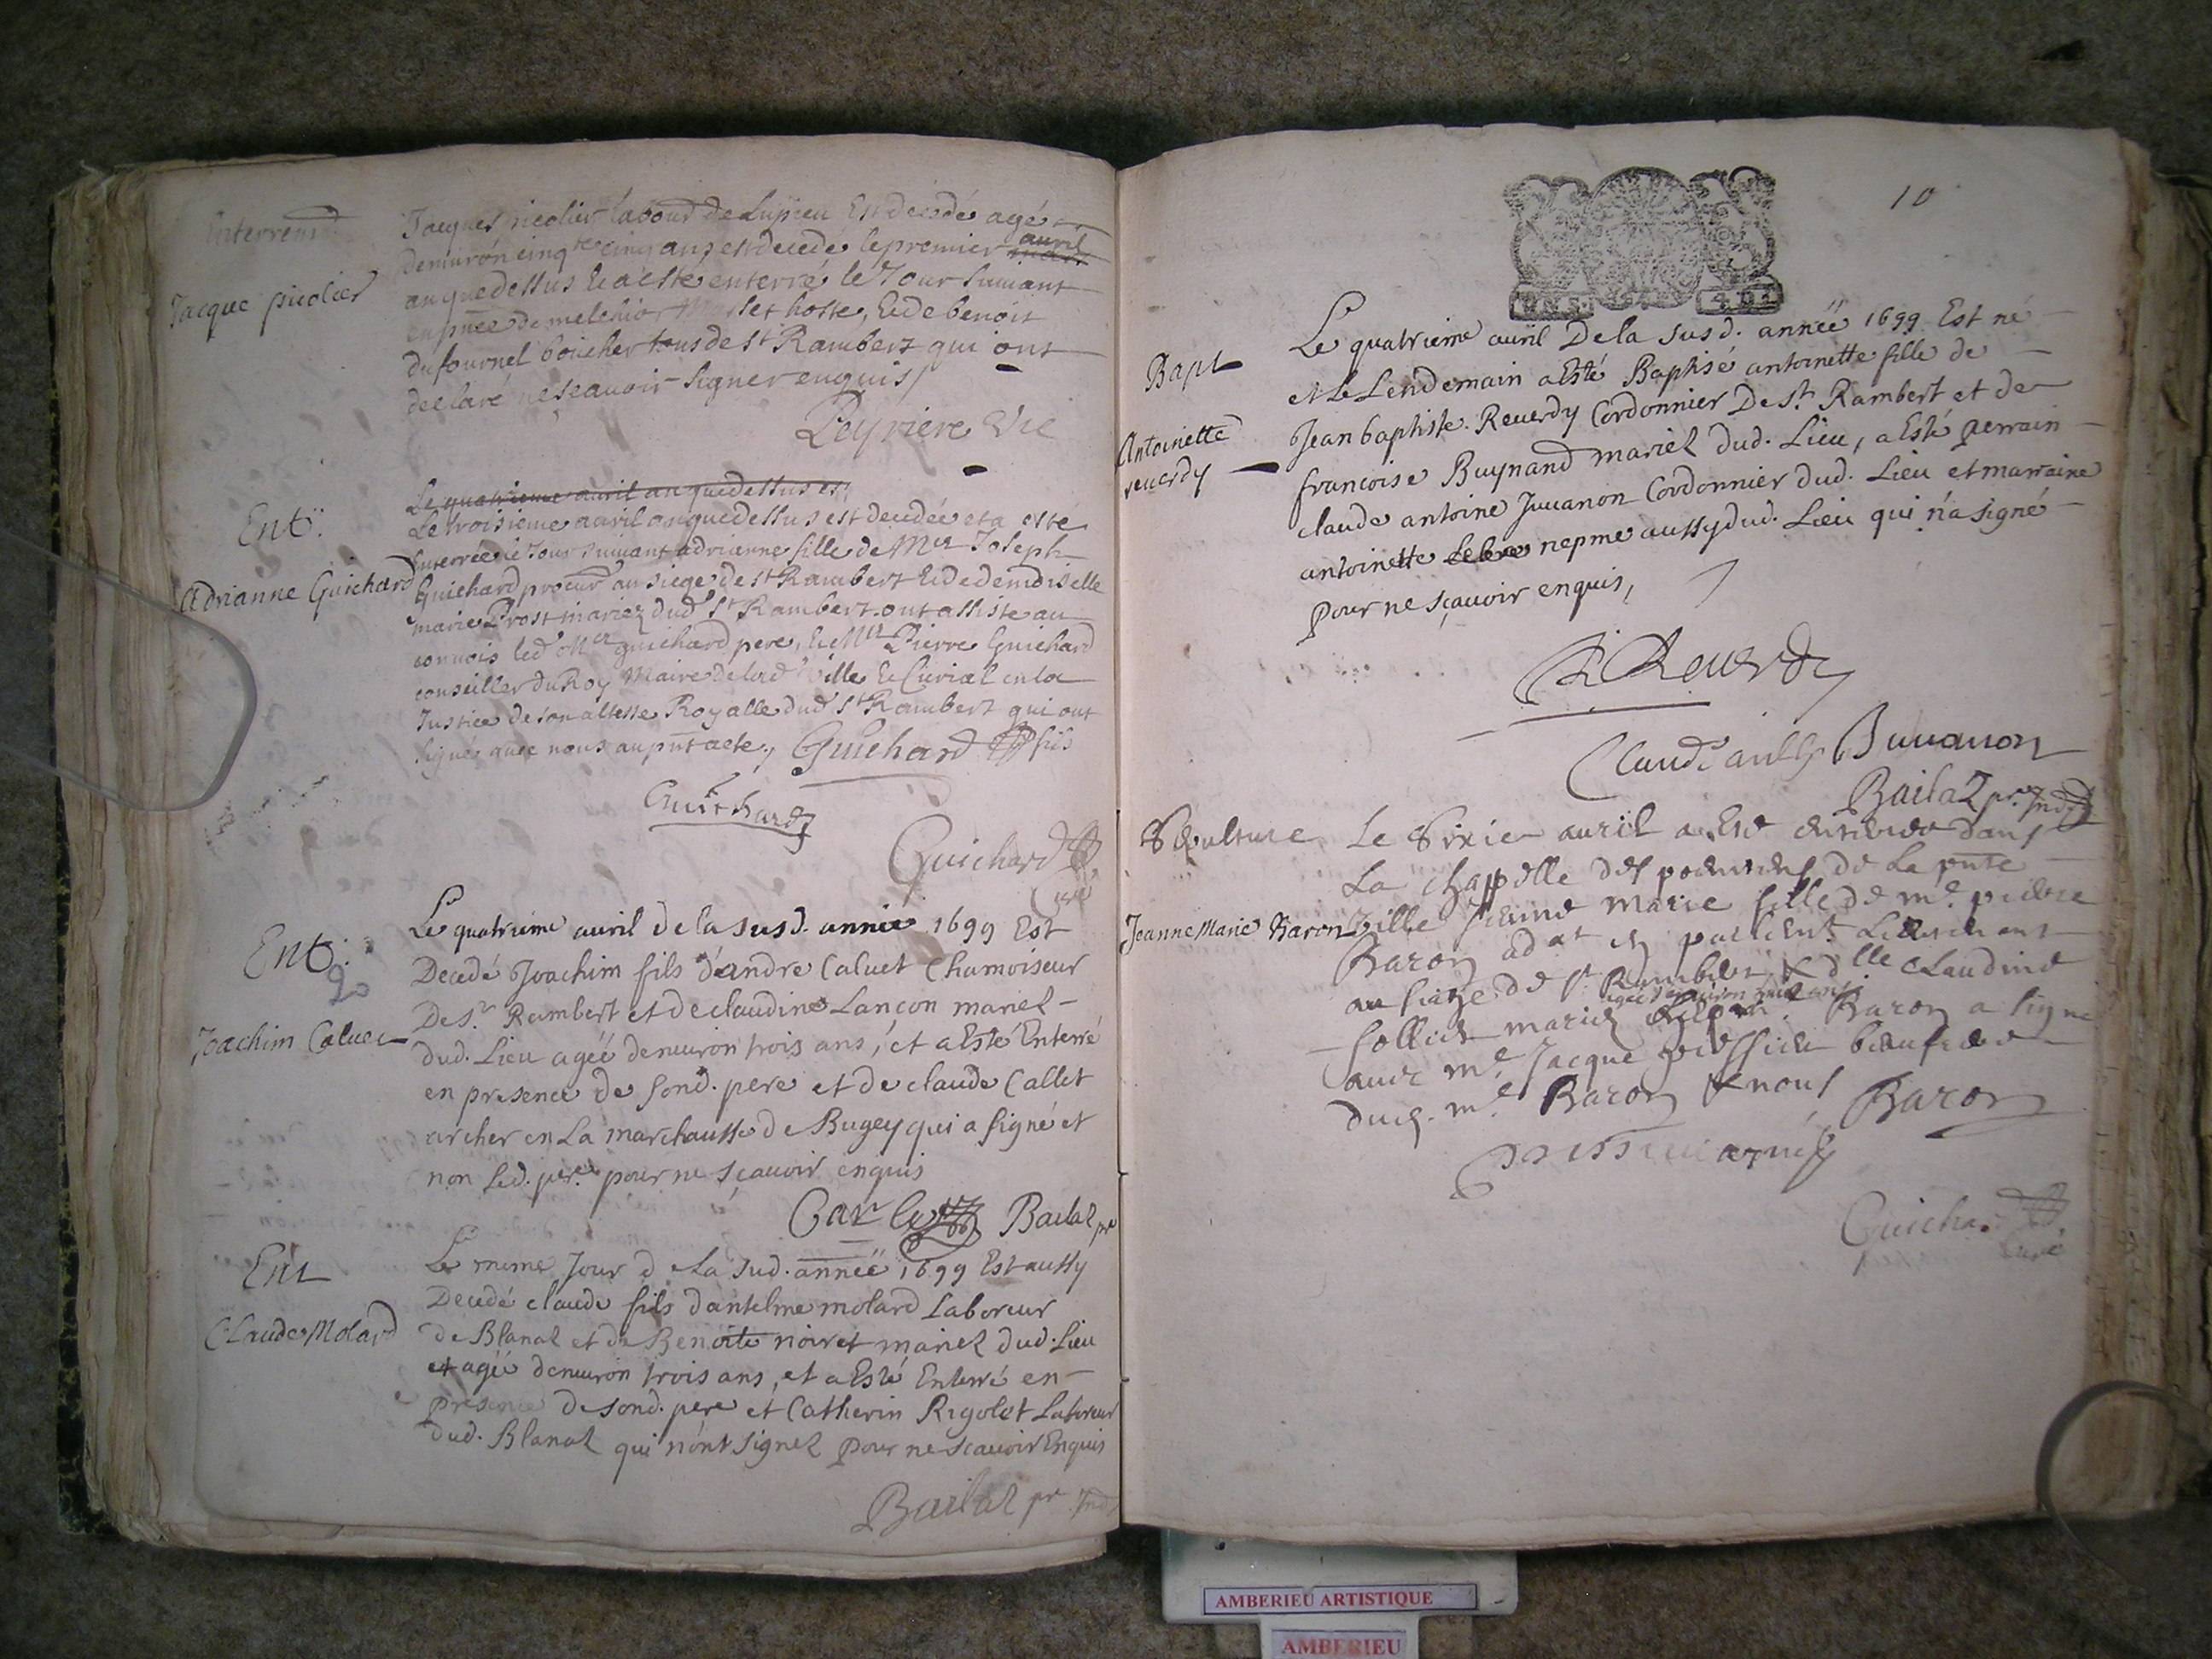 Interremt
Jacque picolier
Jacques picolier labour de Lupieu Est décédé agé
denuiron cinqte cinq ans est decedé le premier mars avril
an que dessus & a esté enterré le Jour suiuant
en pnce de melchior hoste, & de benoit
dufournel boucher tous de st Rambert qui ont
declaré ne scauoir signer enquis
Peyriere Vic
Le quatrieme auril an que dessus est
Ent.
Adrianne Guichard
Le troisieme auril an que dessus est decedée et a esté
Interrée le Jour suiuant adrianne fille de Mre Joseph
Guichard procur au siege de st Rambert & de demoiselle
marie Prost mariez dud st Rambert. ont assisté au
conuois led Mre guichard pere, & Mre Pierre Guichard
conseiller du Roy Maire de lad Ville & Curial en la
Justice de son altesse Royalle dud st Rambert qui ont
signé auec nous au pnt acte, Guichard fils
Guichard
Guichard
Curé
Ent.
2
Joachim Caluet
Le quatrieme auril de la susd. année 1699 Est
Decedé Joachim fils d'andre Caluet Chamoiseur
De St Rambert et de claudine Lançon mariez
dud. Lieu agéé denuiron trois ans, et a Esté Enterré
en presence de sond. pere et de claude Callet
archer en La marchaussé de Bugey qui a signé et
non led. pere pour ne sçauoir enquis
Bailaz pr
Ent
Claude Molard
Le meme Jour de La sud. année 1699 Est aussy
Decedé claude fils dantelme molard Laboreur
de Blanaz et de Benoite noiret mariez dud. Lieu
et agéé denuiron trois ans, et a Esté Enterré en
presence de sond. pere et Catherin Rigolet Laboreur
dud. Blanaz qui n'ont signez pour ne scauoir Enquis
Bailaz pr Ind
10
Bapt
Antoinette
reuerdy
Le quatrieme auril De la susd. année 1699 Est né
et Le Lendemain a Esté Baptisé antoinette fille de
Jean baptiste Reuerdy Cordonnier De St Rambert et de
francoise Buynand mariez dud. Lieu, a Esté perrain
claude antoine Juuanon Cordonnier dud. Lieu et marraine
antoinette nepme aussy dud. Lieu qui n'a signé
pour ne sçauoir enquis,
Reuerdy
Claude anth Juuanon
Bailaz pr. Ind
Sepulture
Jeanne Marie Baron
Le Sixie auril a Esté enterrée dans
La chappelle des penitens de La pnte
Ville Jeanne Marie fille de me pierre
Baron adat en parlement Lieutenant
au siege de St Rambert & dlle Claudine
sollier mariez agée d'enuiron huit ans Baron a signé
auec me Jacque beaufrere
dud. me Baron & nous Baron
Guichard
curé
AMBERIEU ARTISTIQUE
AMBERIEU